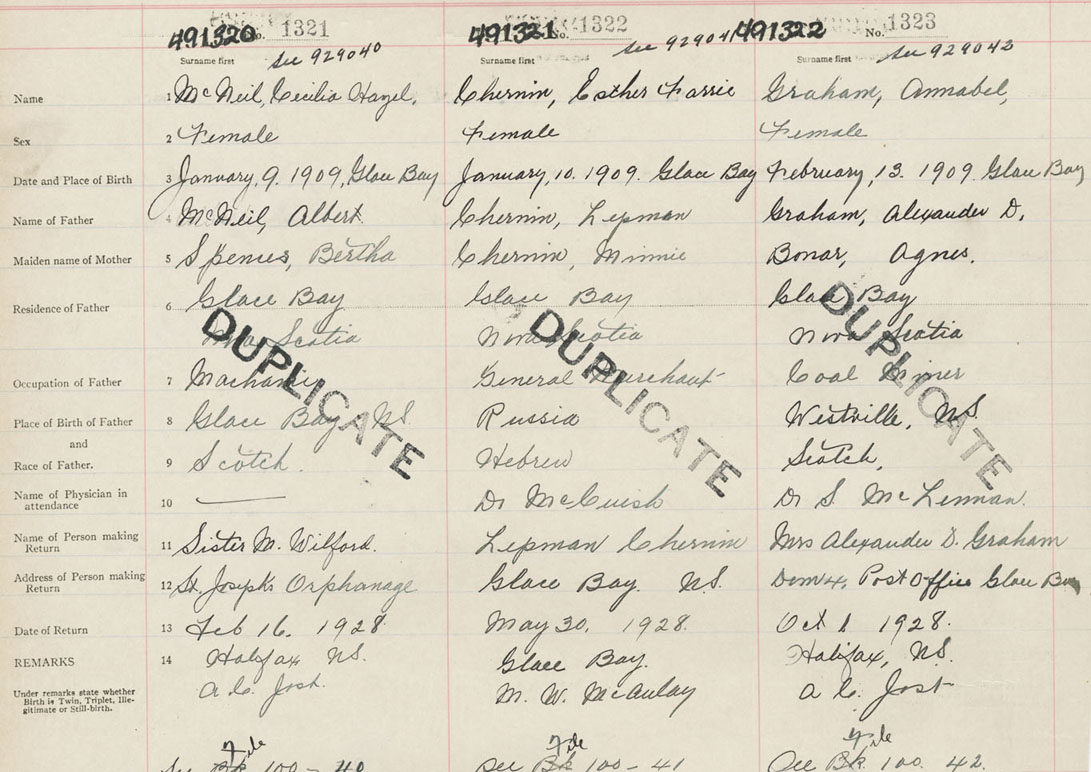 491320 No. 1321 491321 No. 1322 491322 No. 1323
see 929040 see 929041 see 929042
Surname first Surname first Surname first
Name 1 McNeil, Cecilia Hazel, Chernin, Esther Farrie Graham, Annabel,
Sex 2 Female Female Female
Date and Place of Birth 3 January, 9. 1909, Glace Bay January, 10. 1909. Glace Bay February, 13. 1909. Glace Bay
Name of Father 4 McNeil, Albert Chernin, Lepman Graham, Alexander D.
Maiden name of Mother 5 Spencer, Bertha Chernin, Minnie Bonar, Agnes.
Residence of Father 6 Glace Bay Glace Bay Glace Bay
Nova Scotia Nova Scotia Nova Scotia
Occupation of Father 7 General Merchant Coal Miner
Place of Birth of Father 8 Glace Bay NS. Russia Westville, NS.
and
Race of Father. 9 Scotch. Hebrew Scotch,
Name of Physician in attendance 10 Dr McCuish Dr S. McLennan.
Name of Person making Return 11 Sister M. Wilford. Lepman Chernin Mrs Alexander D. Graham
Address of Person making Return 12 St. Joseph's Orphanage Glace Bay. NS. Dom 4, Post Office Glace Bay
Date of Return 13 Feb 16. 1928 May 30, 1928. Oct 1 1928.
REMARKS 14 Halifax NS. Glace Bay. Halifax, NS.
Under remarks state whether Birth is Twin, Triplet, Illegitimate or Still-birth. A. C. Jost. M. W. McAulay A C. Jost
DUPLICATE DUPLICATE DUPLICATE
File File File
See Bk 100 - 40 See Bk 100 - 41 See Bk. 100. 42.